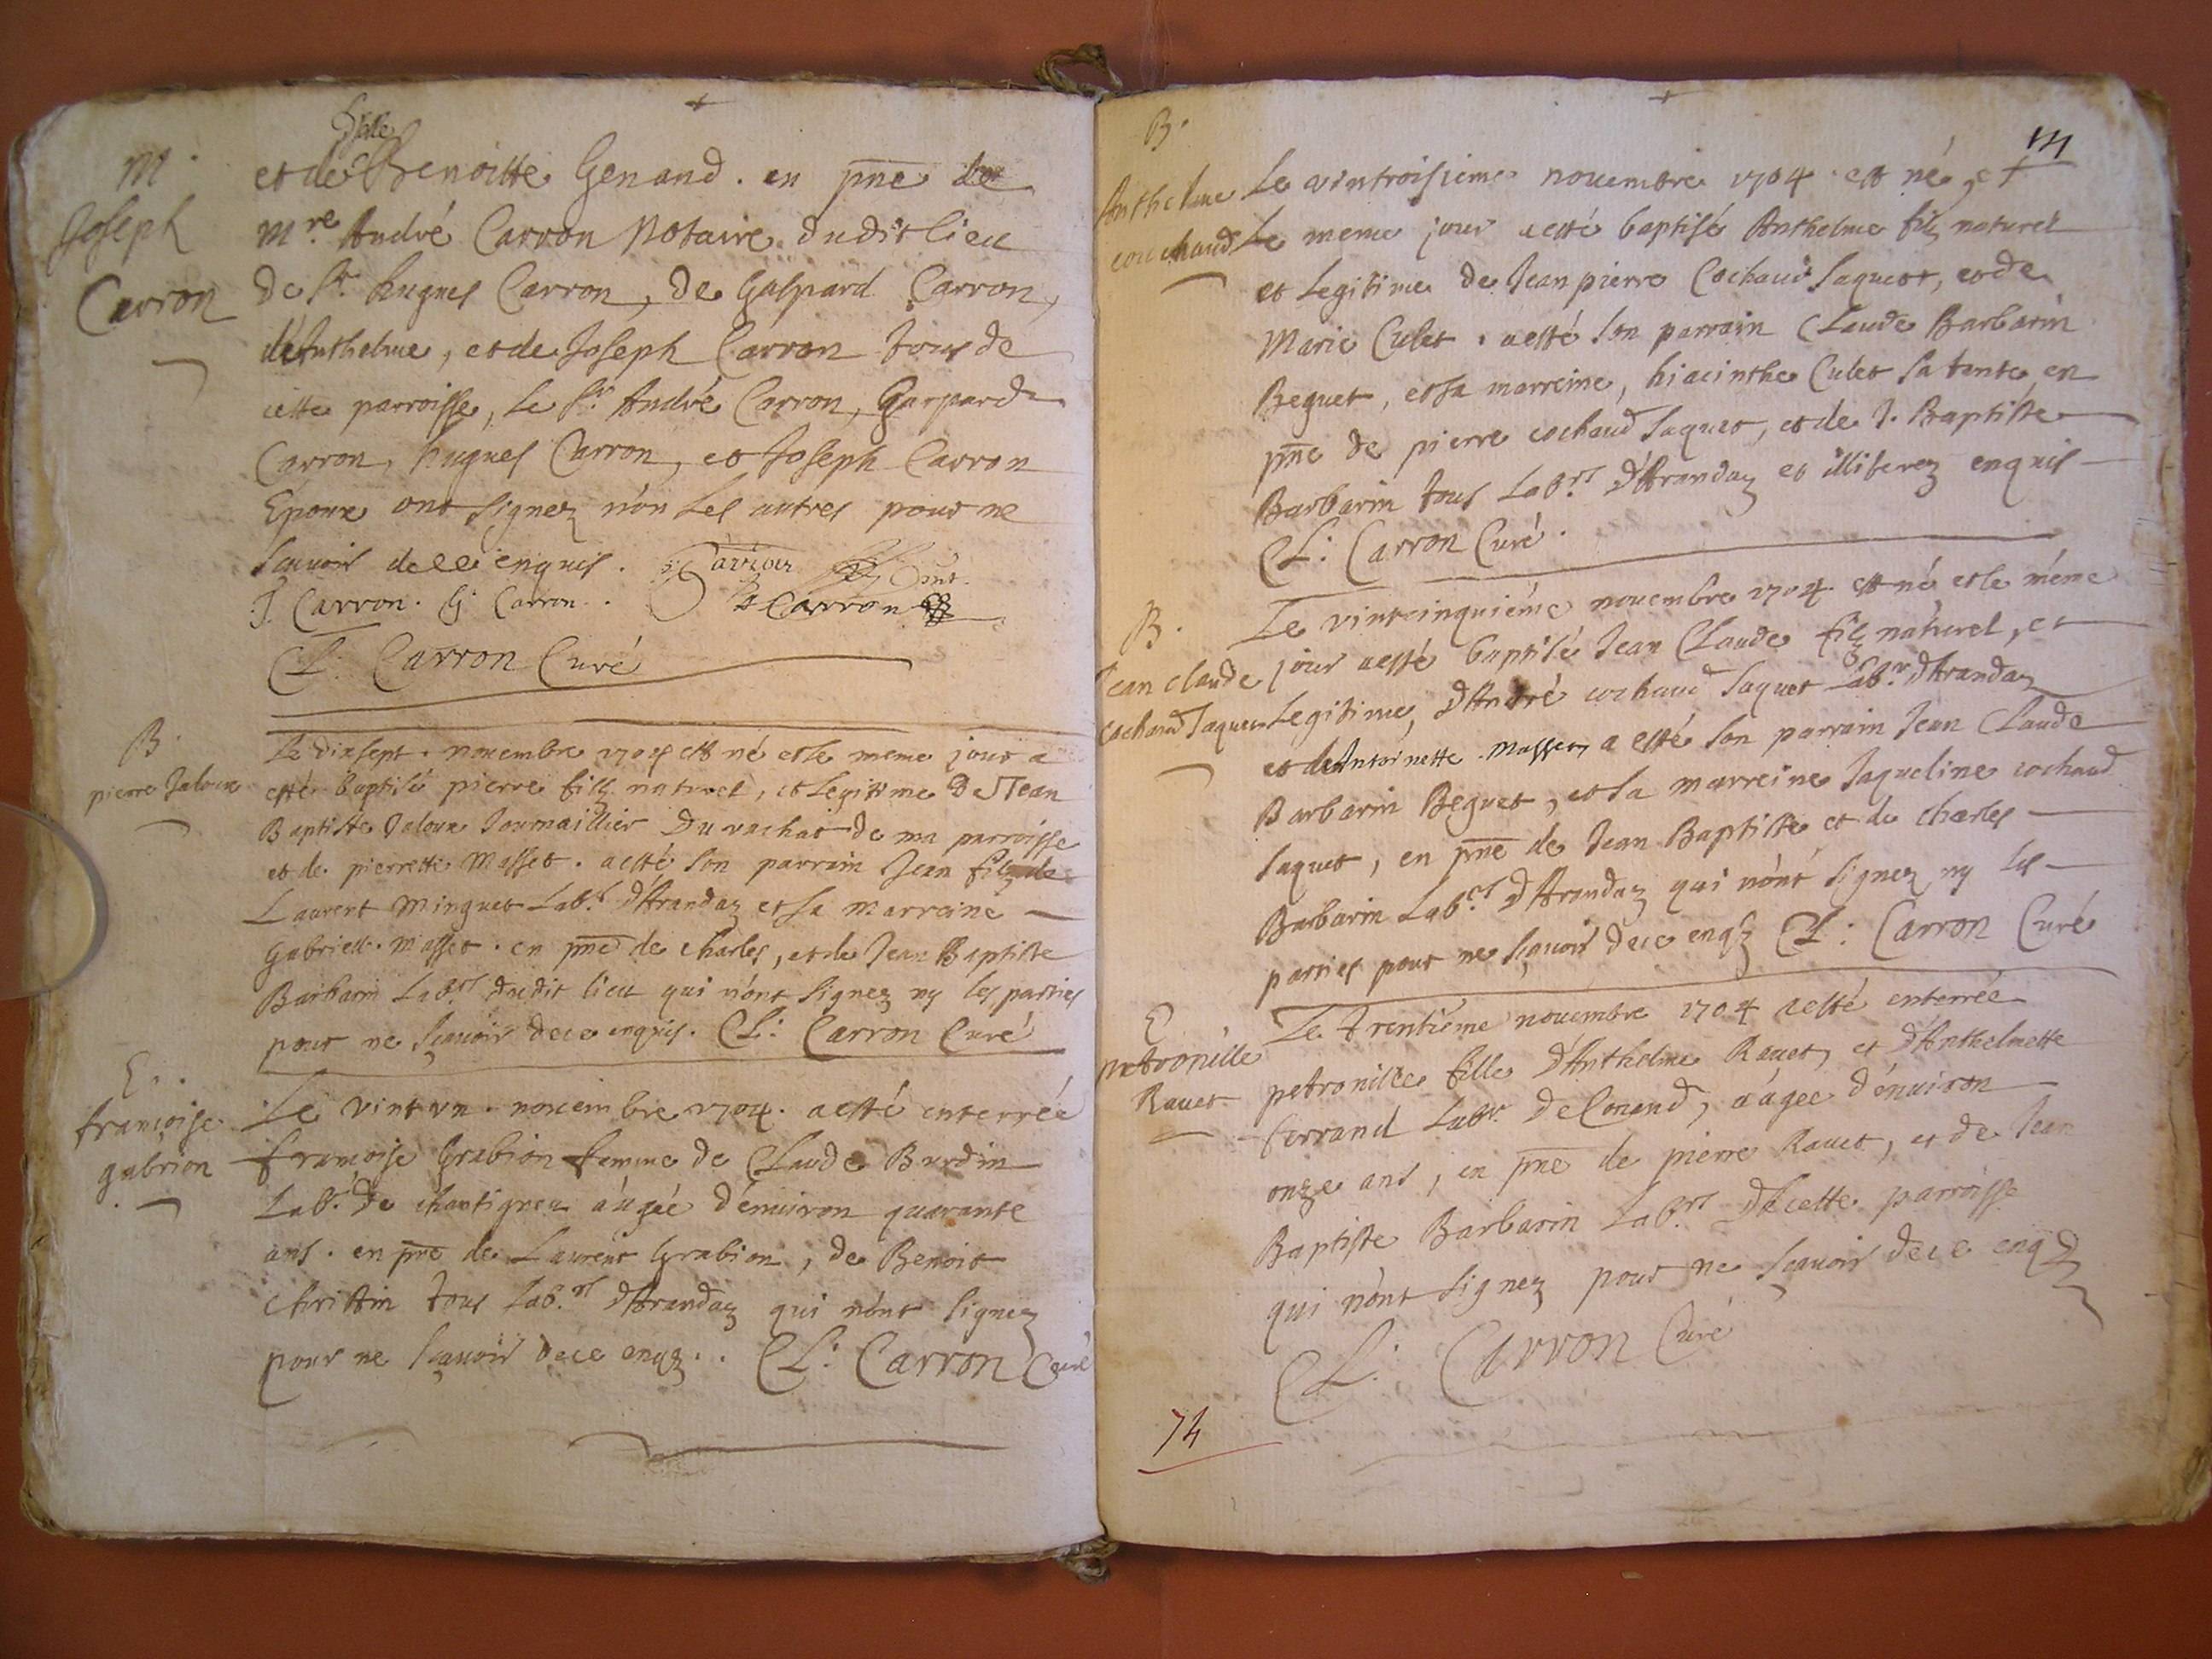 M.
Joseph
Carron
Dlle
et de Benoitte Genand. en pnce de
Mre. André Carron Notaire dudit lieu
de Sr. hugues Carron, de Gaspard Carron,
d'Anthelme, et de Joseph Carron tous de
cette parroisse, le Sr. André Carron, Gaspard
Carron, hugues Carron, et Joseph Carron
Epoux ont signez non les autres pour ne
sçavoir de ce enquis. Carron
J. Carron. G Carron. Carron
Cl: Carron Curé
B.
pierre Jaloux
Le dixsept. novembre 1704 est né et le meme jour a
esté baptisé pierre filz naturel, et legitime De Jean
Baptiste Jaloux Journaillier Du vachat de ma parroisse
et de pierrette Masset. a esté son parrain Jean filz de
Laurent Minguet Labr. d'Arandaz et sa marreine
Gabrielle Masset. en pnce de Charles, et de Jean Baptiste
Barbarin Labrs dudit lieu qui n'ont signez ny les parties
pour ne sçavoir de ce enquis. Cl: Carron Curé
E..
francoise
gabrion
Le vint un. novembre 1704. a esté enterrée
francoise Grabion femme de Claude Burdin
Labr. de chantigneu aâgée d'environ quarante
ans. en pnce de Laurent Grabion, de Benoit
Christin tous Labrs d'Arandaz qui n'ont signez
pour ne sçavoir de ce enqz.. Cl: Carron Curé
B.
Anthelme
couchaud
Le vintroisieme novembre 1704 est né, et
Le meme jour a esté baptisé Anthelme filz naturel
et Legitime de Jean pierre Cochaud Jaquet, et de
Marie Culet. a esté son parrain Claude Barbarin
Beguet, et sa marreine, hiacinthe Culet sa tante, en
pnce de pierre cochaud Jaquet, et de J. Baptiste
Barbarin tous Labrs d'Arandaz et illiterez enquis
Cl: Carron Curé.
B.
Jean claude
cochaud Jaquet
Le vintcinquiéme novembre 1704. est né et le méme
jour a esté baptisé Jean Claude filz naturel, et
Legitime, d'André cochaud Jaquet Labr. d'Arandaz
et d'Antoinette Masset, a esté son parrain Jean Claude
Barbarin Beguet, et sa marreine Jaqueline cochaud
Jaquet, en pnce de Jean Baptiste et de charles
Barbarin Labrs d'Arandaz qui n'ont signez ny les
parties pour ne sçavoir de ce enqz Cl: Carron Curé
E
petronille
Ravet
Le trentiéme novembre 1704 a esté enterrée
petronille fille d'Anthelme Ravet, et d'Anthelmette
ferrand Labr. de Conand, aâgee d'environ
onze ans, en pnce de pierre Ravet, et de Jean
Baptiste Barbarin Labrs de cette parroisse
qui n'ont signez pour ne sçavoir de ce enqz
Cl: Carron Curé
74